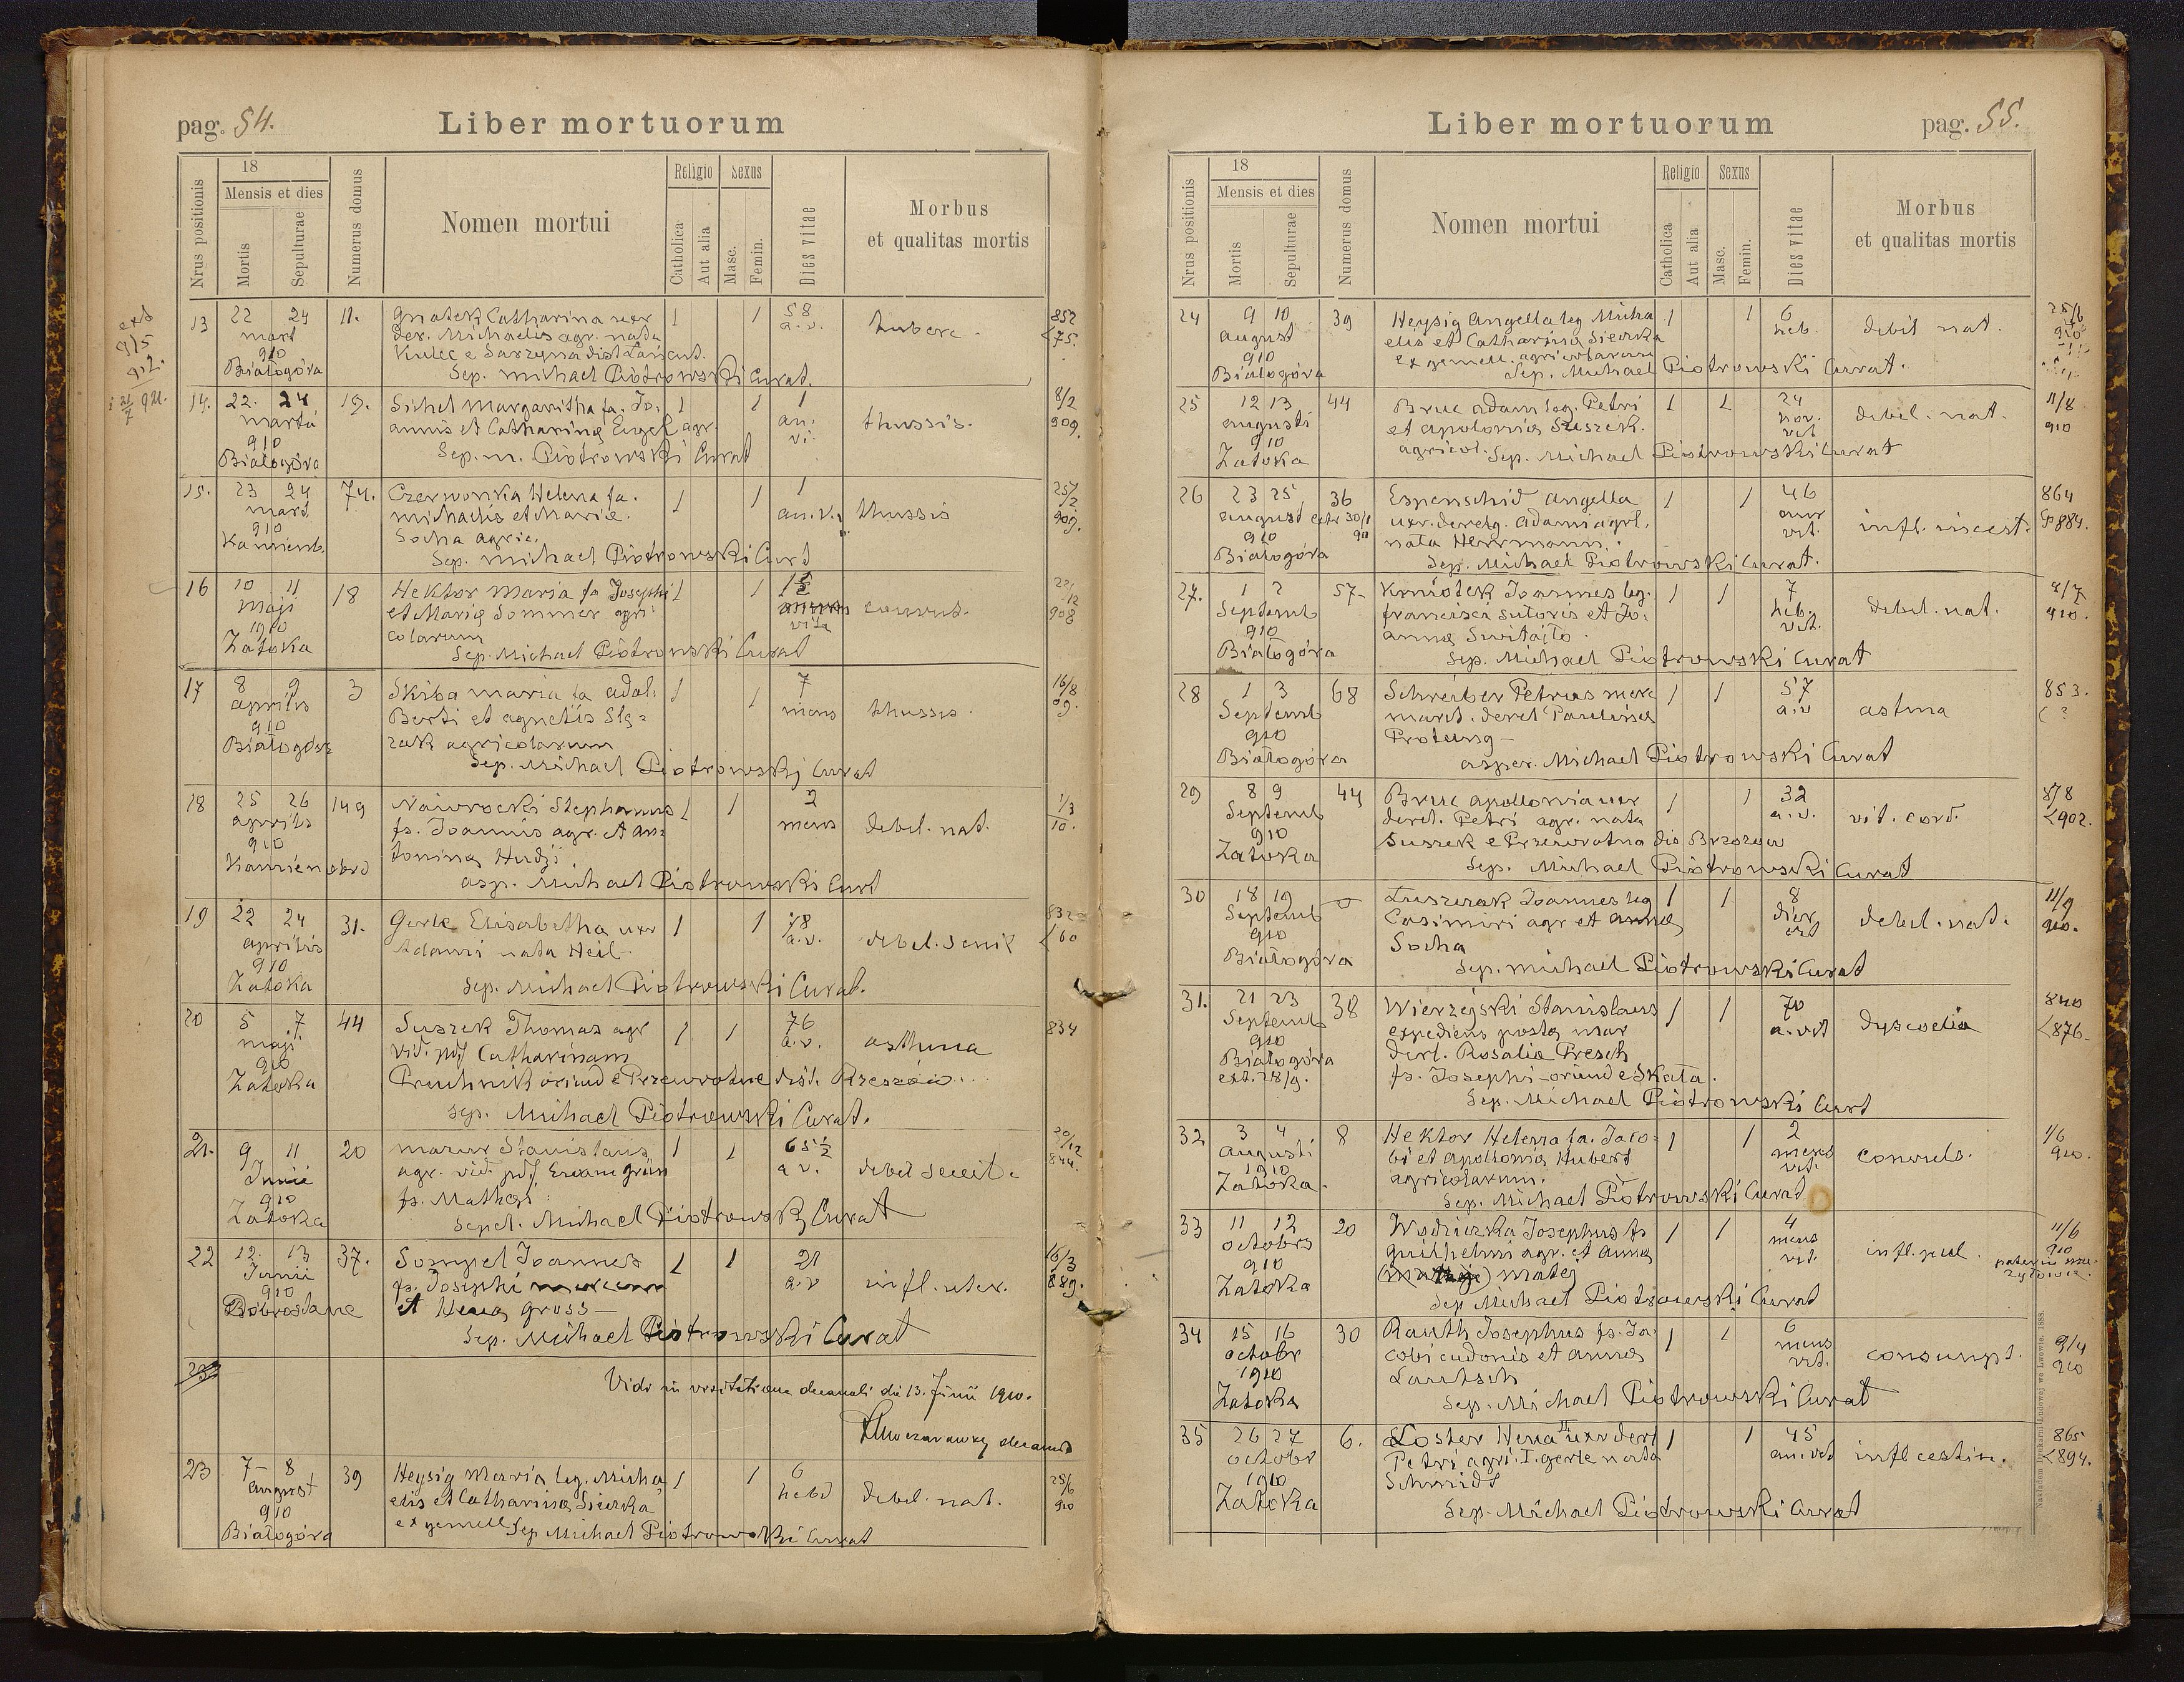 pag. 54.
Liber mortuorum
Nrus positionis
18
Mensis et dies
Mortis
Sepulturae
Numerus domus
Nomen mortui
Religio
Catholica
Aut alia
Sexus
Masc.
Femin.
Dies vitae
Morbus
et qualitas mortis
13 22 24 11. Gnatek Catharina uxr 1 1 58 852
mart der. Michaelis agr. nata a.v. tuberc. <75.
910 Kulec e Sarzyna dist Łańcut.
Białogóra Sep. Michael Piotrowski Curat.
14. 22. 24 19. Sichel Margaritha fa. Jo= 1 1 1 8/2
martii annis et Catharinę Engel agr. an. thussis. 909.
910 vi.
Białogóra Sep. m. Piotrowski Curat
15. 23 24 74. Czerwonka Helena fa. 1 1 1 25/2
mart. Michaelis et Mariæ. an.v. thussis 909.
910 Socha agric.
Kamienb. Sep. Michael Piotrowski Curt
16 10 11 18 Hektor Maria fa Josephi 1 1
maji et Marię Sommer agri= convuls. 908
1910 colarum vita
Zatoka Sep. Michael Piotrowski Curat
17 8 9 3 Skiba Maria fa Adal= 1 1 7 16/8
aprilis berti et Agnetis Slę= mens thussis. 09.
910 zak agricolarum
Białogóra Sep. Michael Piotrowski Curat
18 25 26 149 Nawrocki Stephanus 1 1 2 1/3
aprilis fs. Joannis agr. et An= mens debil. nat. 10.
910 toninę Hudzi.
Kamienobrd asp. Michael Piotrowski Curt
19 22 24 31. Gerle Elisabetha uxr 1 1 78 832
aprilis Adami nata Heil- a.v. debil. senil <60
910
Zatoka Sep. Michael Piotrowski Curat.
20 5 7 44 Suszek Thomas agr 1 1 76 834
maji vid. pdf Catharinam a.v. asthma
910 Pruchnik oriund e Przewrotne dist. Rzeszów.
Zatoka Sep. Michael Piotrowski Curat.
21. 9 11 20 Mazur Stanislaus 1 1 65½ 20/12
Junii agr. vid. pdf. Evam Grün a v. debil senil. 844.
910 fs. Mathęi
Zatoka Sepel. Michael Piotrowski Curat
22 12. 13 37. Sompel Joannes 1 1 21 16/3
Junii fs. Josephi a.v infl. uter. 889.
910 et Hevæ Gross-
Dobrostane Sep. Michael Piotrowski Curat
23
Vidi in visitatione decanali die 13. Junii 1910.
decanus
23 7- 8 39 Heysig Maria leg. Micha 1 1 6 25/6
august elis et Catharinę Sierzka hebd debil. nat. 910
910 ex gemell Sep Michael Piotrowski Curat
Białogóra
Liber mortuorum
pag. 55.
Nrus positionis
18
Mensis et dies
Mortis
Sepulturae
Numerus domus
Nomen mortui
Religio
Catholica
Aut alia
Sexus
Masc.
Femin.
Dies vitae
Morbus
et qualitas mortis
24 9 10 39 Heysig Angella leg Micha 1 1 6 25/6
august elis et Catharinę Sierzka heb. debil nat. 910
910 ex gemell. agricolarum
Białogóra Sep. Michael Piotrowski Curat.
25 12 13 44 Bruc Adam leg. Petri 1 1 24 11/8
augusti et Apolonię Suszek. hor. debil. nat. 910
910 agricol. vit
Zatoka Sep. Michael Piotrowski Curat
26 23 25 36 Espenschid Angella 1 1 46 864
august extr 30/1 uxr. derelg. Adami agrl. anr infl. incest. 884.
910 nata Herrmann. vit.
Białogóra Sep. Michael Piotrowski Curat.
27. 1 2 57- Kmiotek Joannes leg. 1 1 7
Septemb francisci sutoris et Jo= heb. debil. nat. 910.
910 annę Switajło. vit.
Białogóra Sep. Michael Piotrowski Curat
28 1 3 68 Schreiber Petrus merc 1 1 57 853.
Septemb marit. derel Paulinæ a.v astma
910 Proteung-
Białogóra asper. Michael Piotrowski Curat
29 8 9 44 Bruc Apollonia uxr 1 1 32 8/8
Septemb derel. Petri agr. nata a.v. vit. cord. <902.
910 Suszek e Przewrotna dis Brzozow
Zatoka Sep. Michael Piotrowski Curat
30 18 19 0 Łuszczak Joannes leg 1 1 8 11/9
Septemb Casimiri agr et Annæ dier debil. nat. 910.
910 Socha vit
Białogóra Sep. Michael Piotrowski Curat
31. 21 23 38 Wierzejski Stanislaus 1 1 70 840
Septemb expediens postę mar a.vit dyscoelia <876-
910 derl. Rosalia Presch
Białogóra fs. Josephi- oriund e Skała.
ext. 28/9. Sep. Michael Piotrowski Curt
32 3 4 8 Hektor Helena fa. Jaco= 1 1 2 1/6
augusti bi et Apollonię Hubert mens convuls. 910.
1910 agricolarum. vit.
Zatoka. Sep. Michael Piotrowski Curat
33 11 12 20 Wodniczka Josephus fs 1 1 4 11/6
octobris Guilhelmi agr. et Annæ mens infl. pul. 910
910 Matej vit.
Zatoka Sep Michael Piotrowski Curat
34 15 16 30 Rauth Josephus fs. Ja= 1 1 6 9/4
octobr cobi cudonis et Annæ mens consumpt. 910
1910 Lautsch vit.
Zatoka Sep. Michael Piotrowski Curat
35 26 27 6. Loster Heva II uxr derl 1 1 45 865
octobr Petri agri. I. gerle nata an. vit infl cestin. <894.
1910 Schmidt
Zatoka Sep. Michael Piotrowski Curat
Nakładem Drukarni Ludowej we Lwowie. 1888.